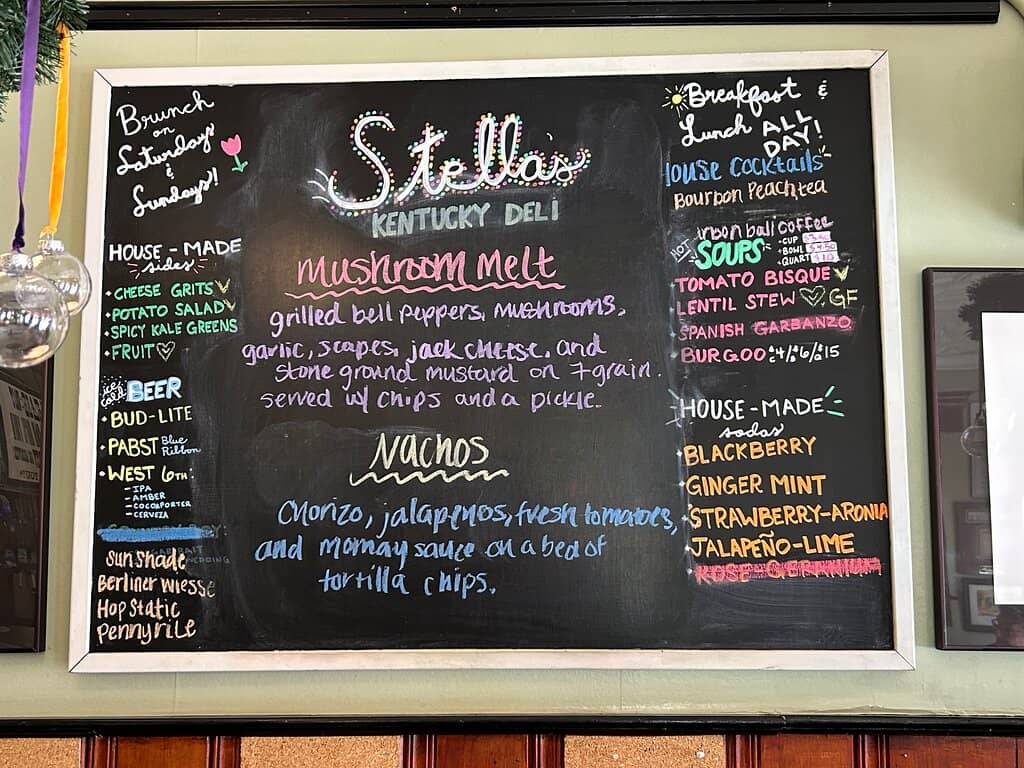 Brunch
on
Saturdays
&
Sundays!
HOUSE-MADE
sides
• CHEESE GRITS
• POTATO SALAD
• SPICY KALE GREENS
• FRUIT
ice cold BEER
• BUD-LITE
• PABST Blue Ribbon
• WEST 6TH:
- IPA
- AMBER
- COCOAPORTER
- CERVEZA
Sun Shade
Berliner Wiesse
Hop Static
Pennyrile
Stella's
KENTUCKY DELI
Mushroom Melt
grilled bell peppers, mushrooms,
garlic, scapes, jack cheese, and
stone ground mustard on 7 grain.
served w/ chips and a pickle.
Nachos
Chorizo, jalapeños, fresh tomatoes,
and mornay sauce on a bed of
tortilla chips.
Breakfast &
Lunch ALL
DAY!
House Cocktails
Bourbon Peach tea
rbon ball coffee
HOT SOUPS
- CUP
- BOWL $4.50
- QUART $10
TOMATO BISQUE
LENTIL STEW GF
SPANISH GARBANZO
BURGOO $4/$6/$15
HOUSE-MADE
sodas
BLACKBERRY
GINGER MINT
STRAWBERRY-ARONIA
JALAPEÑO-LIME
ROSE GERANIUM